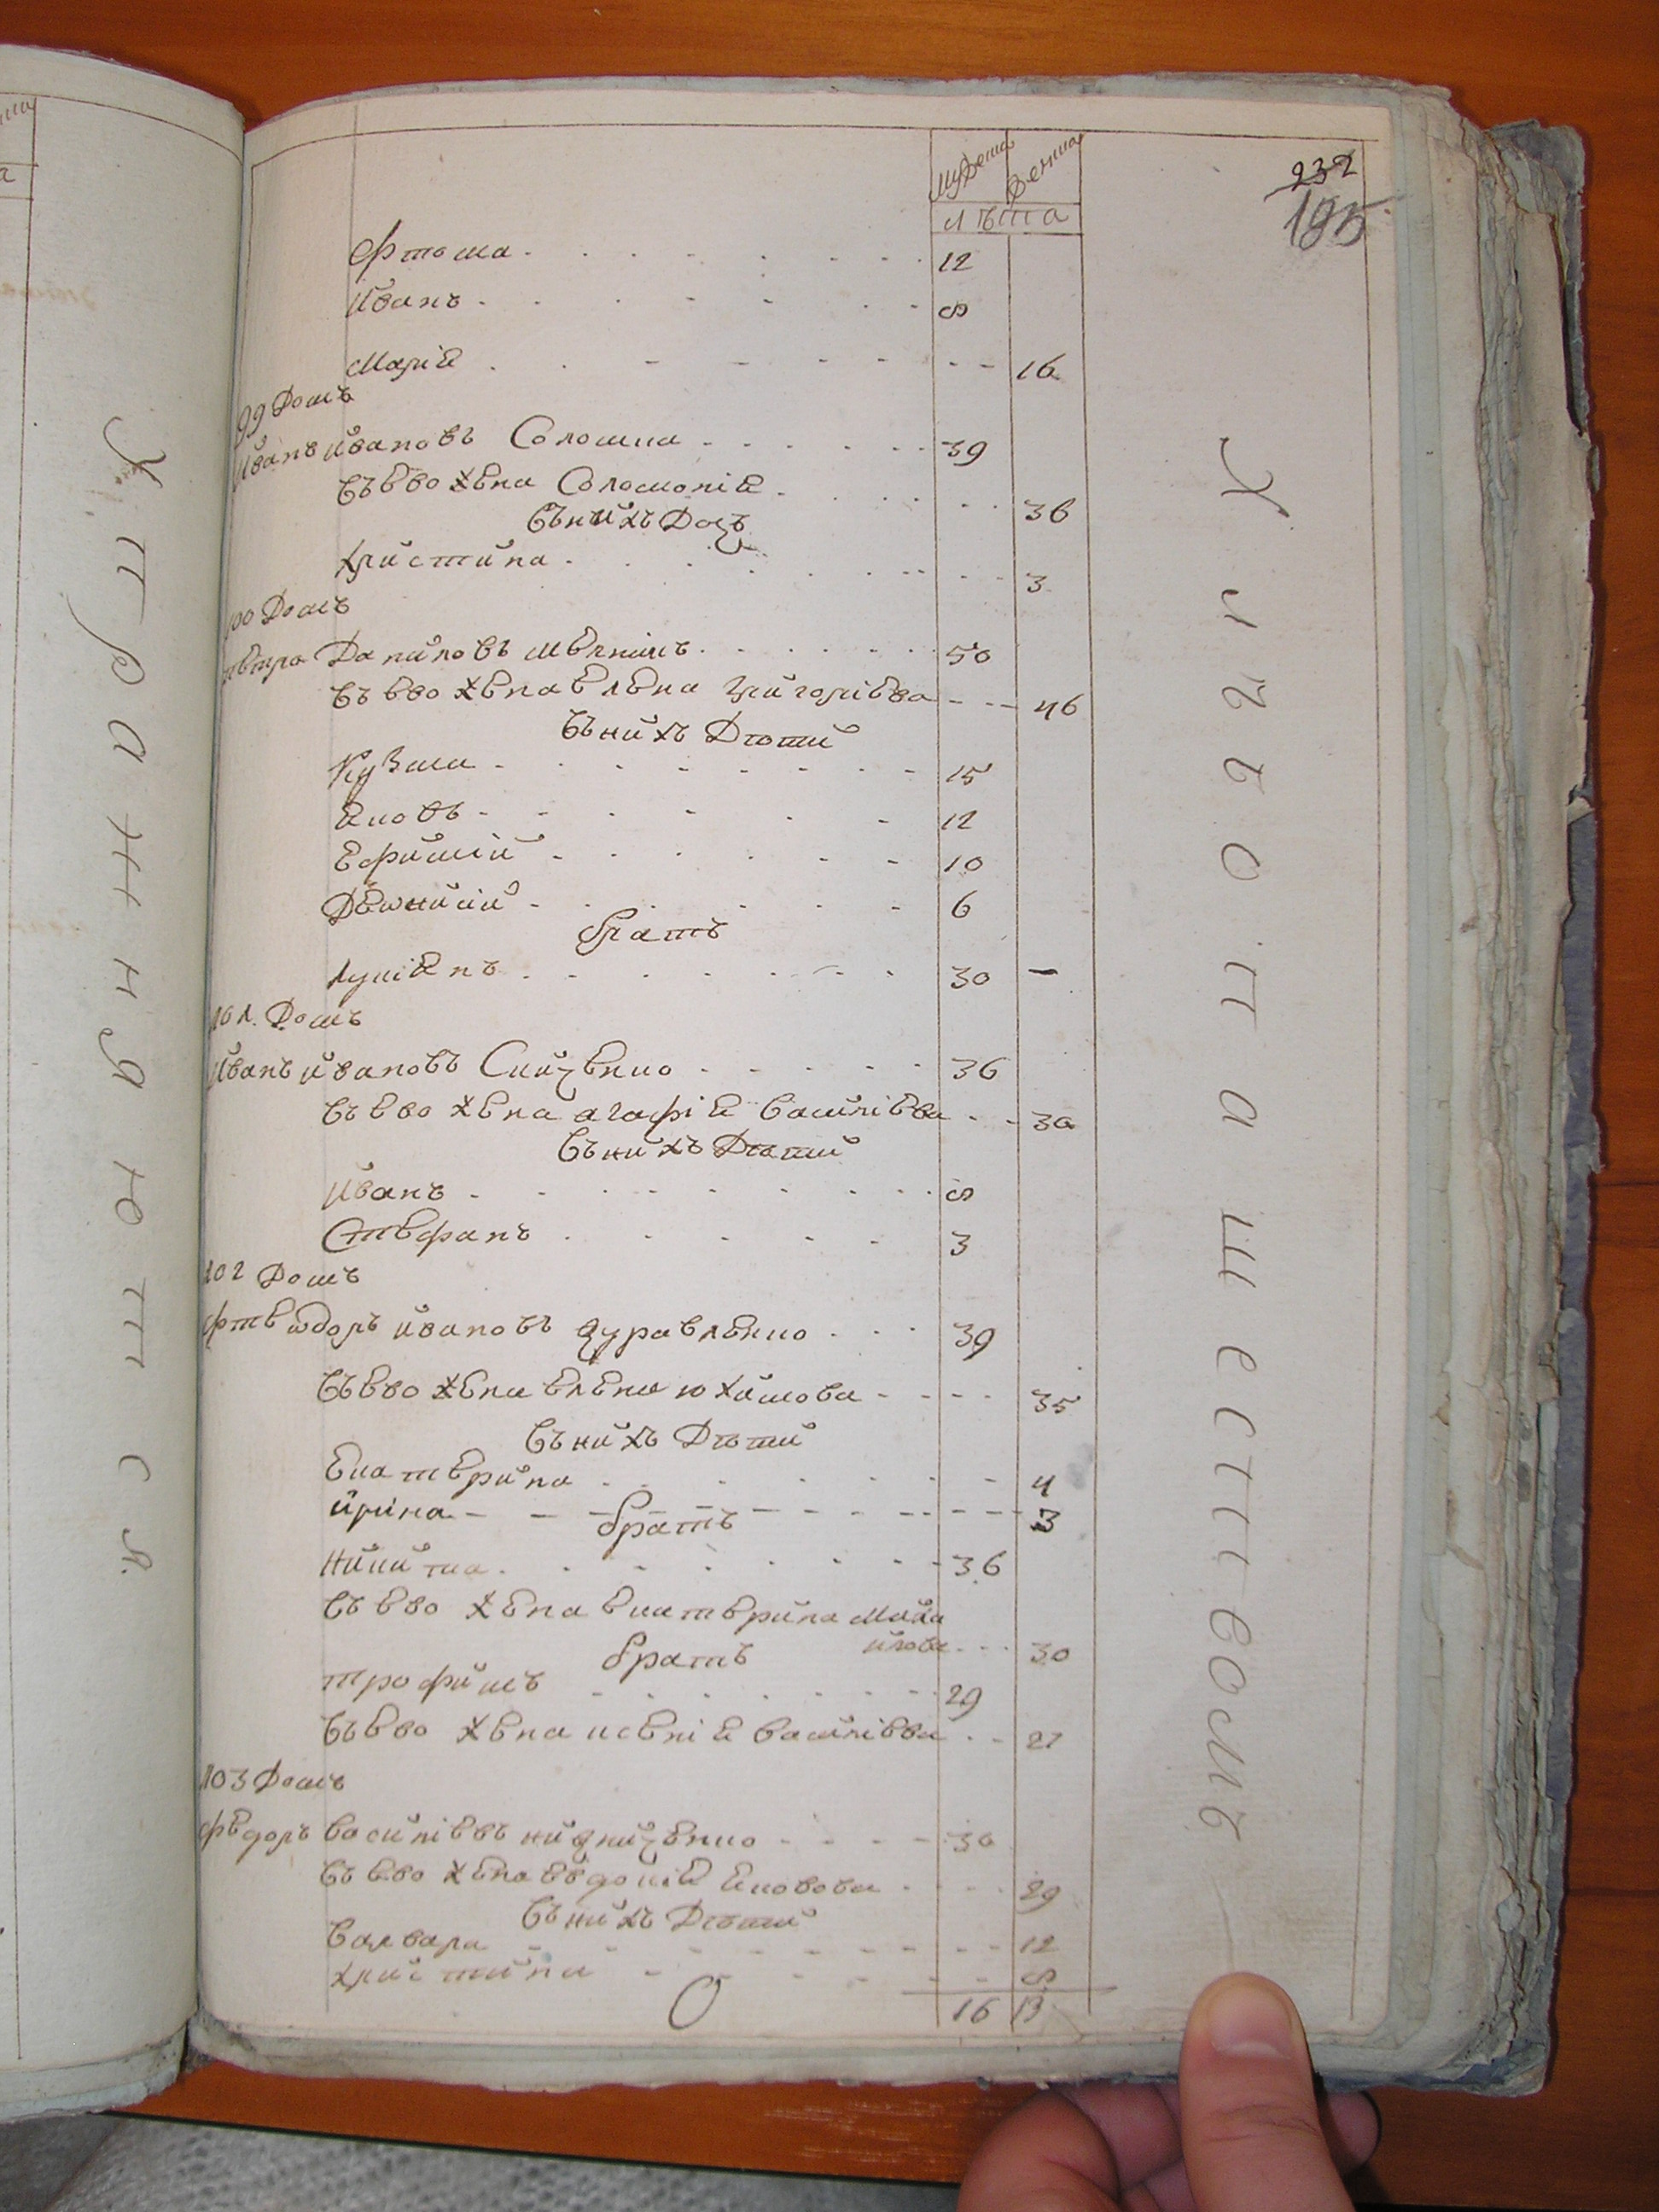 мужеска женска
232
лѣта
195
Фтома 12
Иванъ 8
Марія 16
99 Домъ
Иванъ Ивановъ Соломка 39
Въ ево жена Соломонія 36
Въ нихъ Дочь
Христина 3
100 Домъ
Петро Даниловъ 50
Въ ево жена Елена Григоріева 46
Въ нихъ Дѣти
Кузма 15
Яковъ 12
Ефимій 10
Дѣонисій 6
братъ
Лукіянъ 30 —
101. Домъ
Иванъ Ивановъ 36
Въ ево жена Агафія Василіева 30
Въ нихъ Дѣти
Иванъ 8
Стефанъ 3
102 Домъ
Фтеѡдоръ Ивановъ Журавленко 39
Въ ево жена Елена Юхимова 35
Въ нихъ Дѣти
Екатерина 4
Ирина 3
братъ
Никита 36
Въ ево жена Екатерина Миха
илова 30
братъ
Трофимъ 29
Въ ево жена Ксенія Василіева 27
103 Домъ
Федоръ Василіевъ 30
Въ ево жена Евдокія Яковова 29
Въ нихъ Дѣти
Варвара 12
Христина 8
16 13
Хлѣбопашествомъ
Упражняются